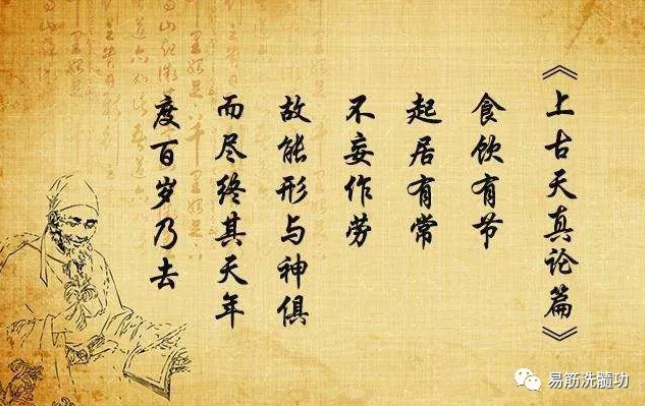 《上古天真论篇》
食饮有节
起居有常
不妄作劳
故能形与神俱
而尽终其天年
度百岁乃去
易筋洗髓功